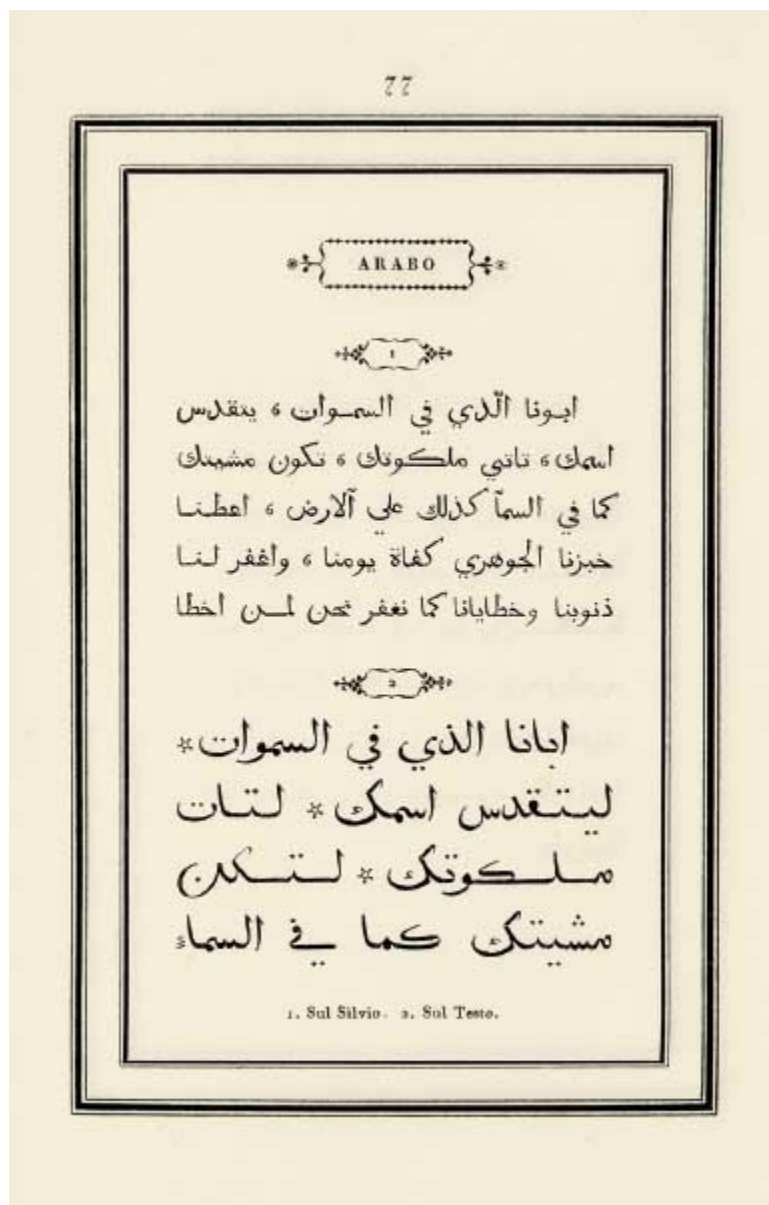 77
ARABO
1
ابونا الّذي في السموات ، يتقدس
اسمك ، تاتي ملكوتك ، تكون مشيتك
كما في السمآ كذلك علي آلارض ، اعطنا
خبزنا الجوهري كفاة يومنا ، واغفر لنا
ذنوبنا وخطايانا كما نغفر نحن لمن اخطا
2
ابانا الذي في السموات *
ليتقدس اسمك * لتات
ملكوتك * لتكن
مشيتك كما في السماء
1. Sul Silvio. 2. Sul Testo.